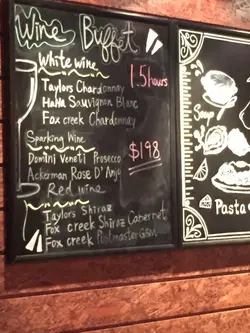 Wine Buffet
White wine
1.5hours
Taylors Chardonnay
HaHa Sauvignon Blanc
Fox creek Chardonnay
Sparking Wine
$198
Domini Veneti Prosecco
Ackerman Rose D'Anjo
Red wine
Taylors Shiraz
Fox creek Shiraz Cabernet
Fox creek Postmaster GSM
Soup
Pasta